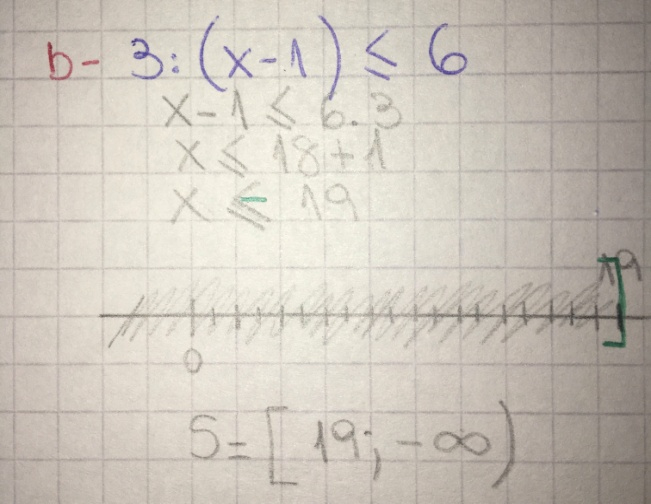 b- 3:(x-1) ≤ 6
x-1 ≤ 6.3
x ≤ 18+1
x ≤ 19
19
0
S= [19; -∞)